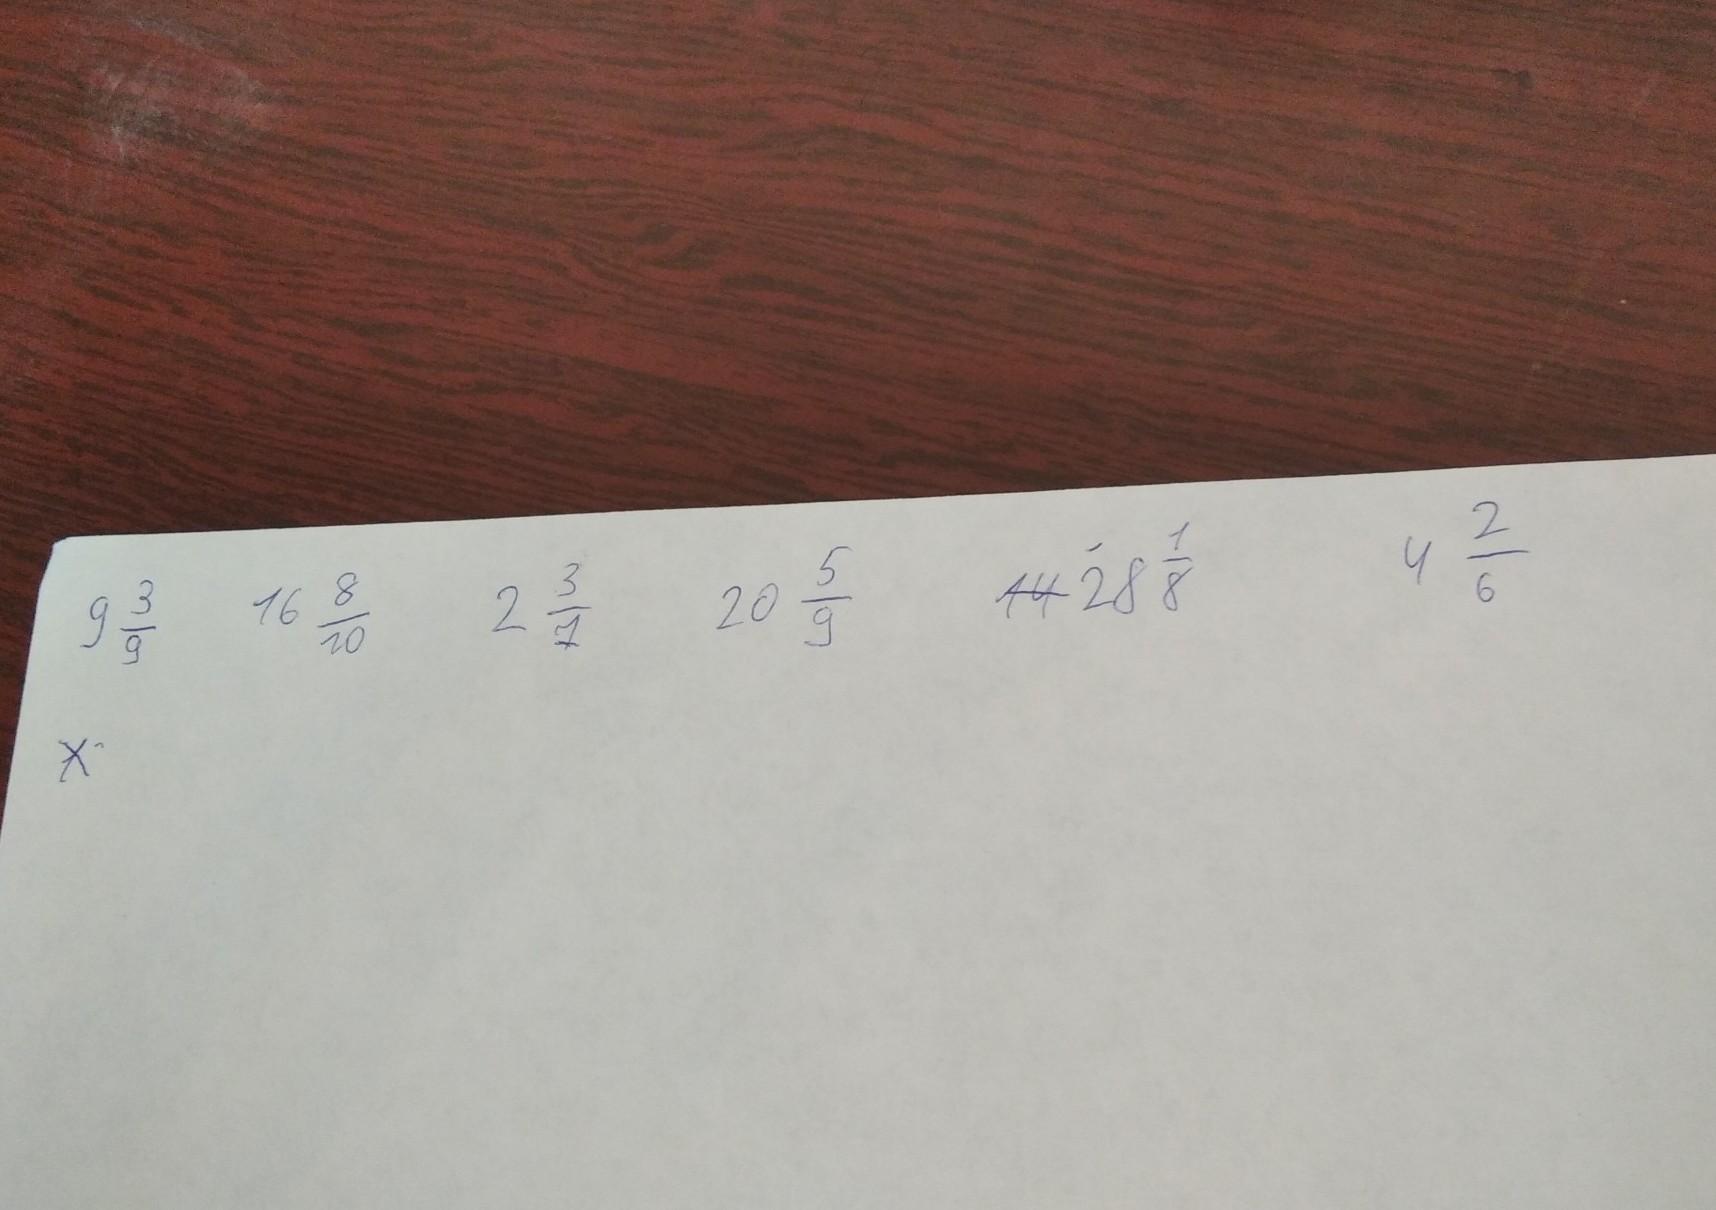 9 3/9 16 8/10 2 3/7 20 5/9 14 28 1/8 4 2/6
x